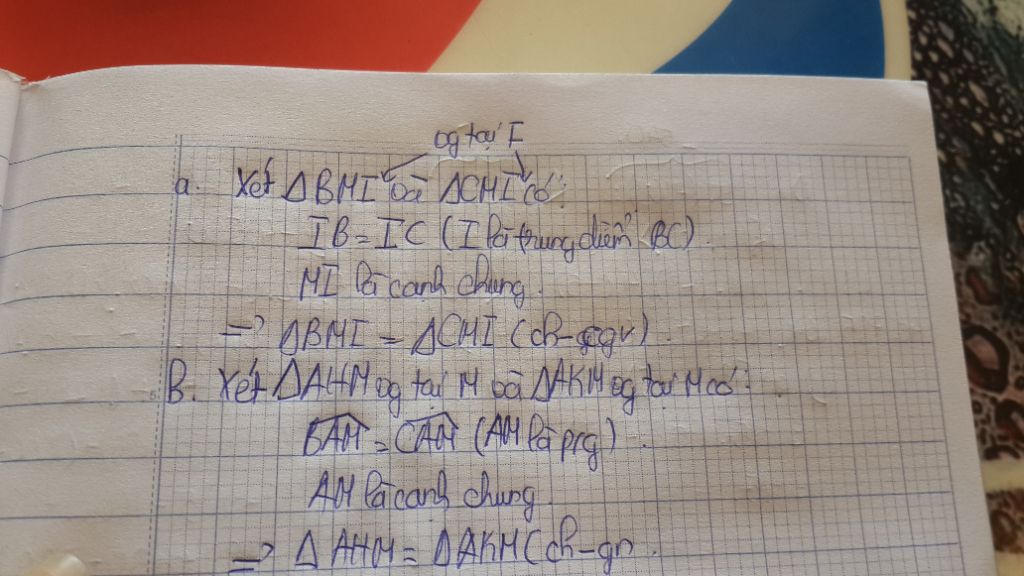 og tại I
a. Xét ΔBMI và ΔCMI có:
IB = IC (I là trung điểm BC).
MI là cạnh chung.
=> ΔBMI = ΔCMI (ch-gv).
B. Xét ΔAHM og tại M và ΔAKM og tại M có:
BAM = CAM (AM là prg).
AM là cạnh chung.
=> ΔAHM = ΔAKM (ch-gn.